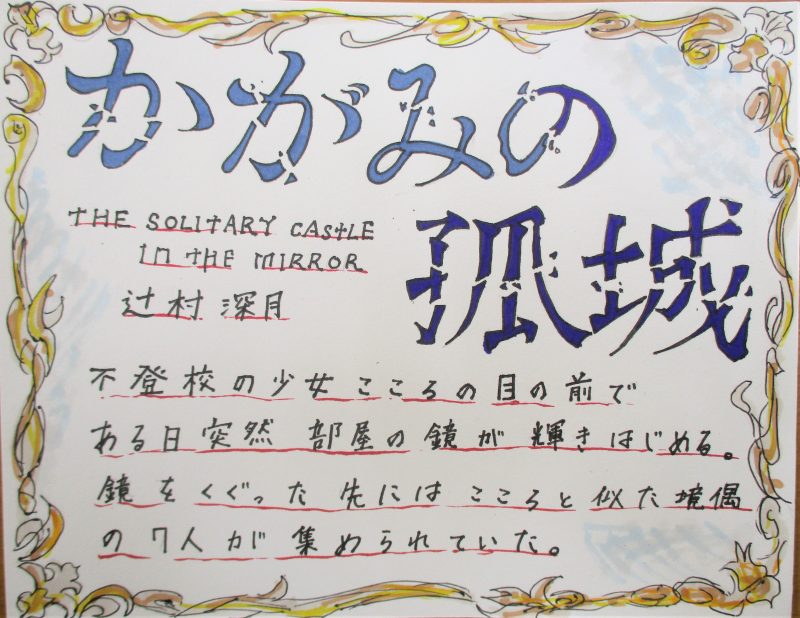 かがみの
孤城
THE SOLITARY CASTLE
IN THE MIRROR
辻村深月
不登校の少女こころの目の前で
ある日突然 部屋の鏡が輝きはじめる。
鏡をくぐった先には こころと似た境偶
の7人が集められていた。